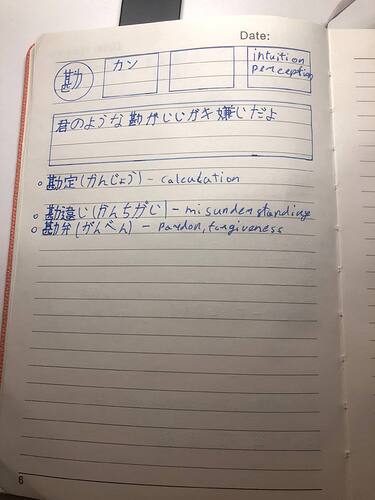 Date:
勘 カン intuition
perception
君のような勘がいいガキ嫌いだよ
勘定(かんじょう) - calculation
勘違い(かんちがい) - misunderstanding
勘弁(かんべん) - pardon, forgiveness
6